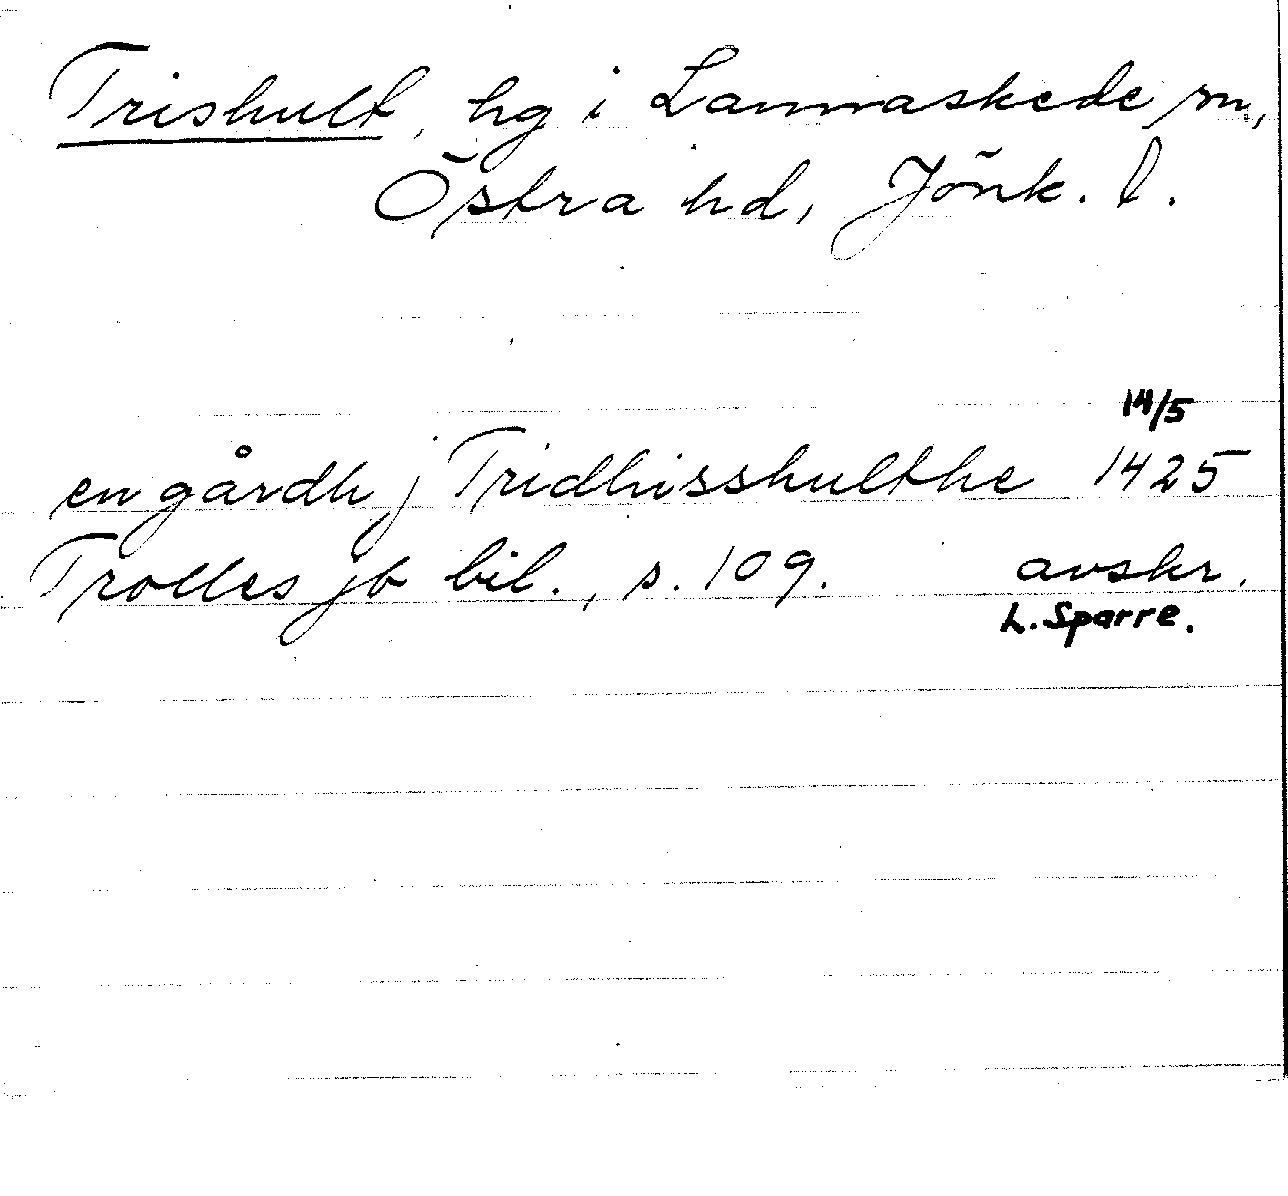 Trishult, hg i Lannaskede sn,
Östra hd, Jönk. l.
14/5
en gårdh j Tridhisshulthe 1425
Trolles jb bil., s. 109. avskr.
L. Sparre.